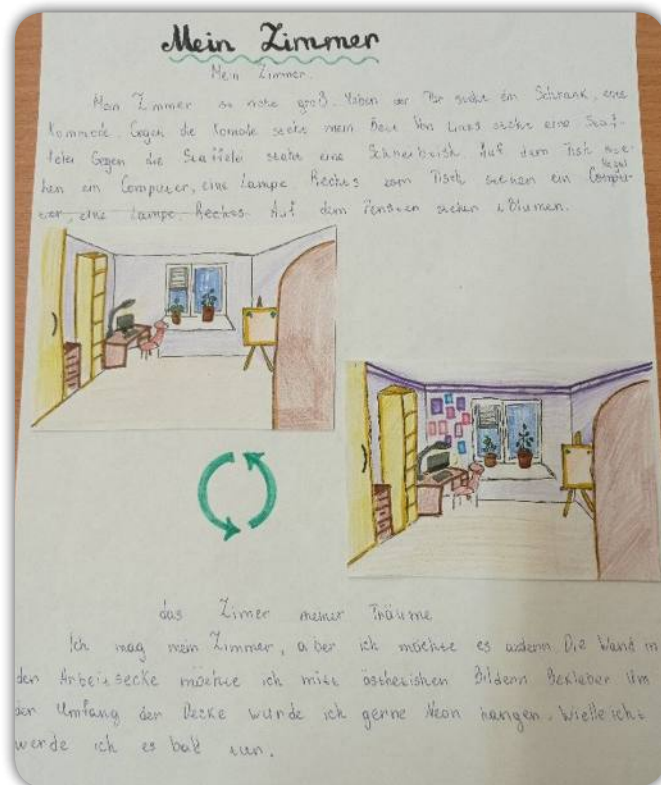 Mein Zimmer
Mein Zimmer.
Mein Zimmer ist nicht groß. Neben der Tür steht ein Schrank, eine
Kommode. Gegen die Komode steht mein Bett. Von Links steht eine Staf-
felei Gegen die Staffelei steht eine Schreibtish. Auf dem Tish
hen ein Computer, eine Lampe Rechts vom Tisch stehen ein Compu-
ter, eine Lampe. Rechts Auf dem Fensten stehen Blumen.
das Zimer meiner Träume
Ich mag mein Zimmer, aber ich möchte es andern Die Wand in
den Arbeitsecke möchte ich mitt ästhetishen Bildern Bekleber Um
den Umfang der Decke wurde ich gerne Neon hangen. Wielleicht
werde ich es balt tun.